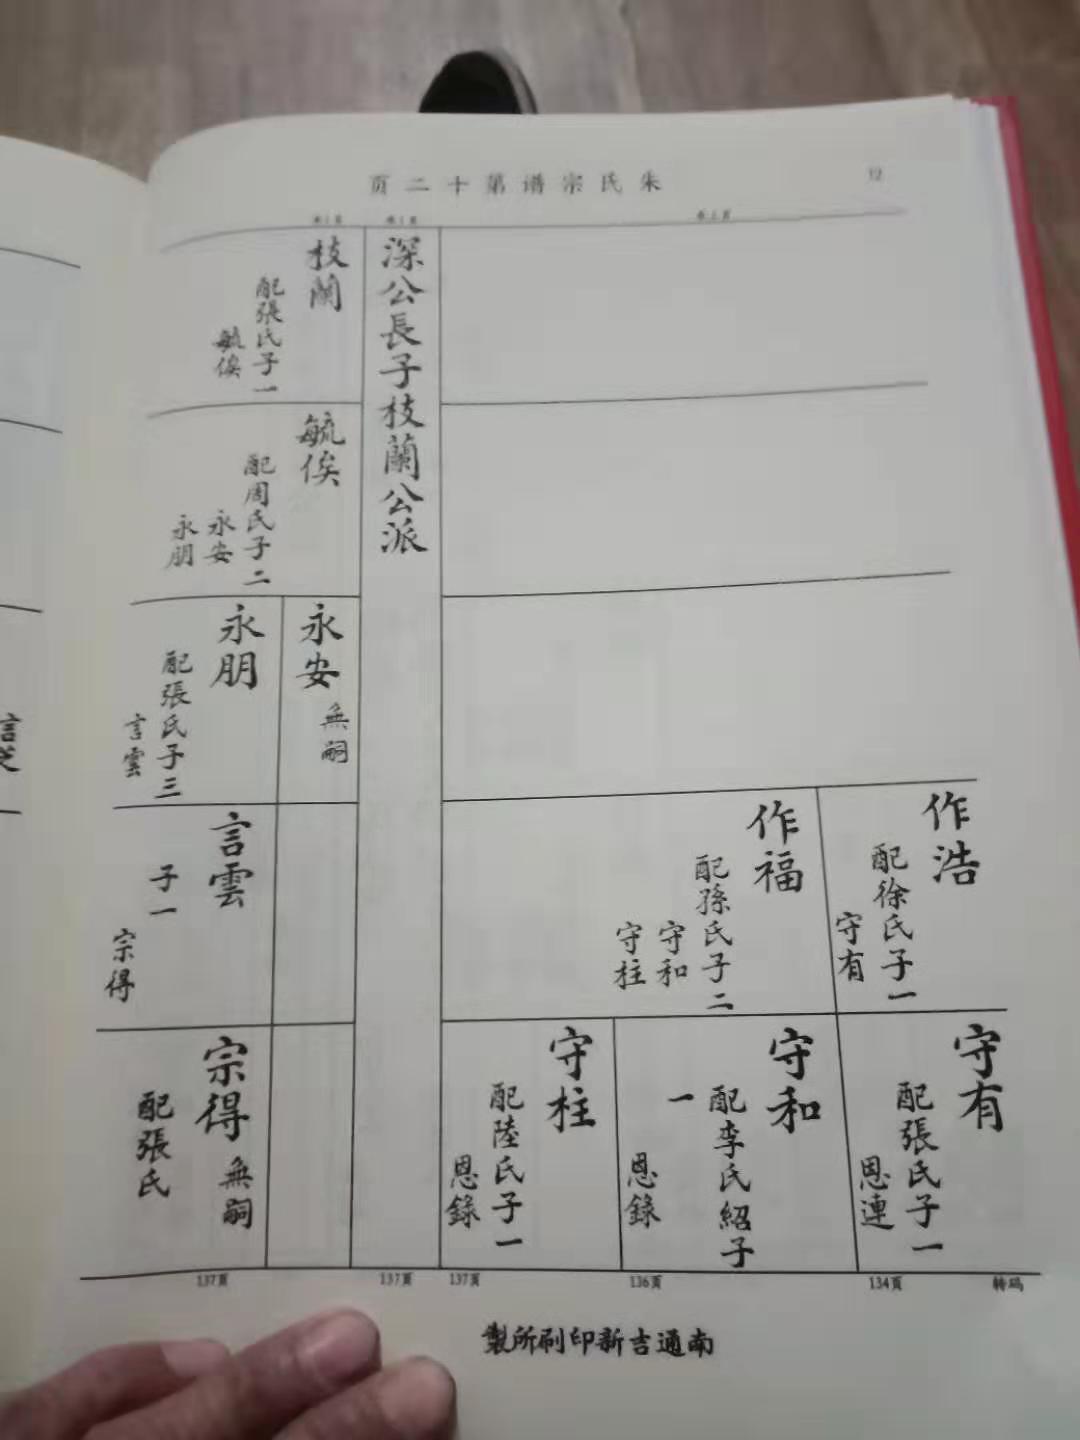 朱氏宗谱第十二页
12
作浩
配徐氏子一
守有
作福
配孫氏子二
守和
守柱
守有
配張氏子一
恩連
守和
配李氏紹子
一
恩錄
守柱
配陸氏子一
恩錄
深公長子枝蘭公派
枝蘭
配張氏子一
毓俟
毓俟
配周氏子二
永安
永朋
永安
無嗣
永朋
配張氏子三
言雲
言雲
子一
宗得
宗得
無嗣
配張氏
转码
134页
136页
137页
137页
137页
南通吉新印刷所製
言芝